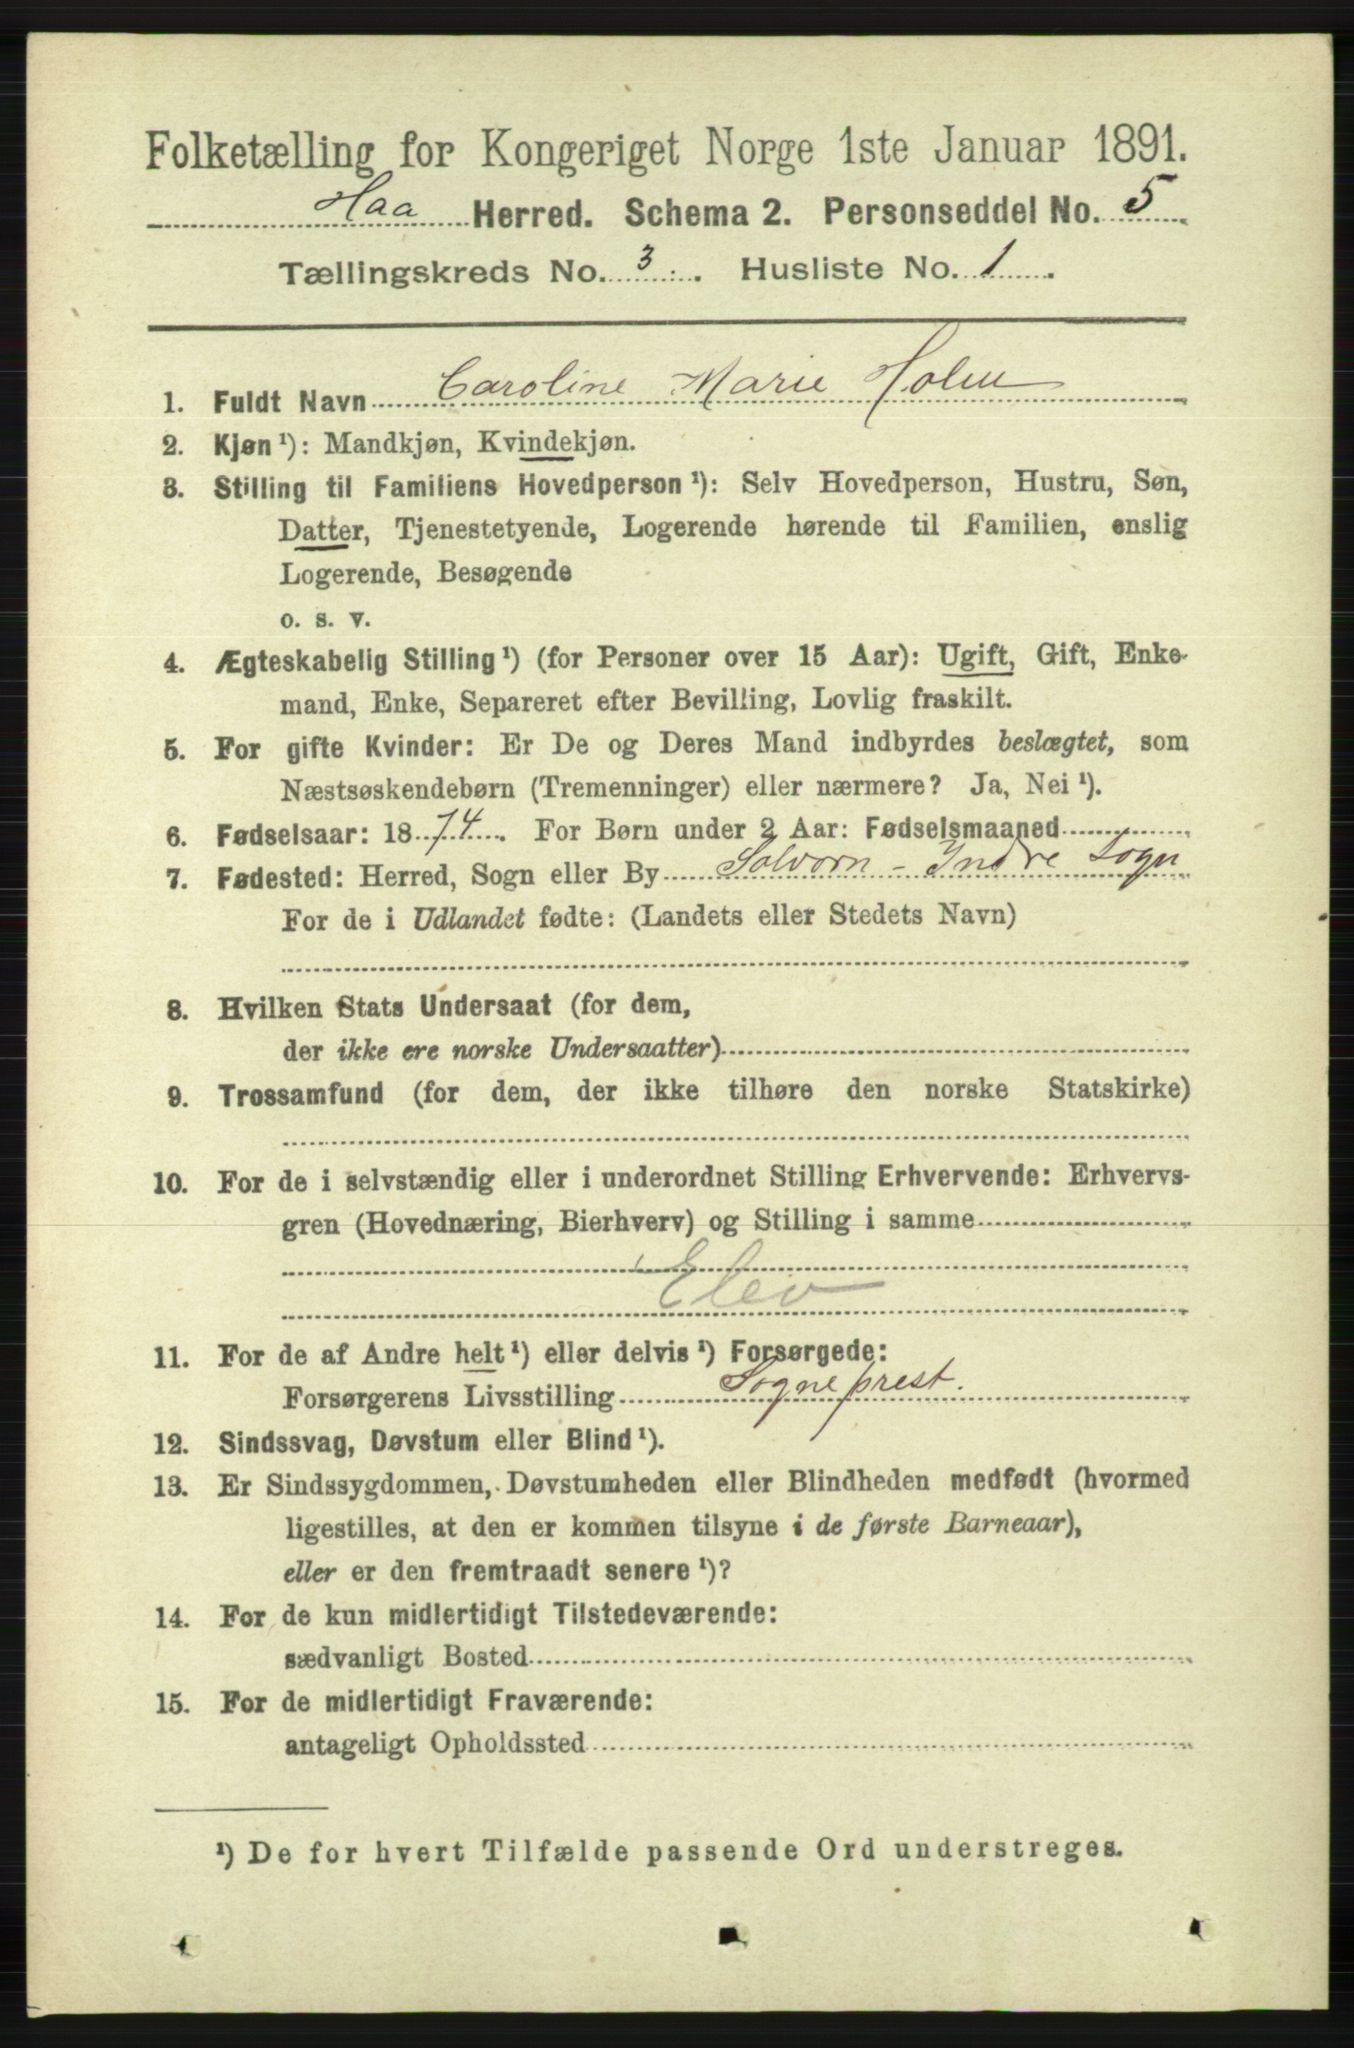 Folketælling for Kongeriget Norge 1ste Januar 1891.
Haa Herred. Schema 2. Personseddel No. 5
Tællingskreds No. 3. Husliste No. 1.
1. Fuldt Navn Caroline Marie Holm
2. Kjøn¹): Mandkjøn, Kvindekjøn.
3. Stilling til Familiens Hovedperson¹): Selv Hovedperson, Hustru, Søn,
Datter, Tjenestetyende, Logerende hørende til Familien, enslig
Logerende, Besøgende
o. s. v.
4. Ægteskabelig Stilling¹) (for Personer over 15 Aar): Ugift, Gift, Enke-
mand, Enke, Separeret efter Bevilling, Lovlig fraskilt.
5. For gifte Kvinder: Er De og Deres Mand indbyrdes beslægtet, som
Næstsøskendebørn (Tremenninger) eller nærmere? Ja, Nei¹).
6. Fødselsaar: 1874. For Børn under 2 Aar: Fødselsmaaned
7. Fødested: Herred, Sogn eller By Solvorn - Indre Sogn
For de i Udlandet fødte: (Landets eller Stedets Navn)
8. Hvilken Stats Undersaat (for dem,
der ikke ere norske Undersaatter)
9. Trossamfund (for dem, der ikke tilhøre den norske Statskirke)
10. For de i selvstændig eller i underordnet Stilling Erhvervende: Erhvervs-
gren (Hovednæring, Bierhverv) og Stilling i samme
Elev
11. For de af Andre helt¹) eller delvis¹) Forsørgede:
Forsørgerens Livsstilling Sogneprest.
12. Sindssvag, Døvstum eller Blind¹).
13. Er Sindssygdommen, Døvstumheden eller Blindheden medfødt (hvormed
ligestilles, at den er kommen tilsyne i de første Barneaar),
eller er den fremtraadt senere¹)?
14. For de kun midlertidigt Tilstedeværende:
sædvanligt Bosted
15. For de midlertidigt Fraværende:
antageligt Opholdssted
¹) De for hvert Tilfælde passende Ord understreges.